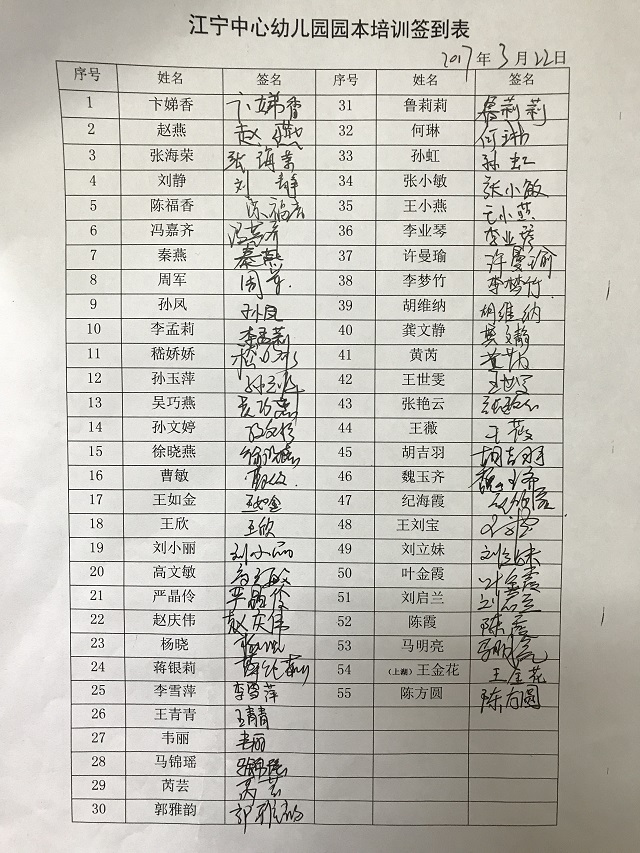 江宁中心幼儿园园本培训签到表
2017年3月22日
序号 姓名 签名 序号 姓名 签名
1 卞娣香 卞娣香 31 鲁莉莉 鲁莉莉
2 赵燕 赵燕 32 何琳 何琳
3 张海荣 张海荣 33 孙虹 孙虹
4 刘静 刘静 34 张小敏 张小敏
5 陈福香 陈福香 35 王小燕 王小燕
6 冯嘉齐 冯嘉齐 36 李业琴 李业琴
7 秦燕 秦燕 37 许曼瑜 许曼瑜
8 周军 周军 38 李梦竹 李梦竹
9 孙凤 孙凤 39 胡维纳 胡维纳
10 李孟莉 李孟莉 40 龚文静 龚文静
11 嵇娇娇 41 黄芮 黄芮
12 孙玉萍 孙玉萍 42 王世雯 王世雯
13 吴巧燕 吴巧燕 43 张艳云 张艳云
14 孙文婷 孙文婷 44 王薇 王薇
15 徐晓燕 徐晓燕 45 胡吉羽 胡吉羽
16 曹敏 曹敏 46 魏玉齐 魏玉齐
17 王如金 王如金 47 纪海霞 纪海霞
18 王欣 王欣 48 王刘宝
19 刘小丽 刘小丽 49 刘立妹 刘立妹
20 高文敏 高文敏 50 叶金霞 叶金霞
21 严晶伶 严晶伶 51 刘启兰 刘启兰
22 赵庆伟 赵庆伟 52 陈霞 陈霞
23 杨晓 53 马明亮 马明亮
24 蒋银莉 蒋银莉 54 （上湖）王金花 王金花
25 李雪萍 李雪萍 55 陈方圆 陈方圆
26 王青青 王青青
27 韦丽 韦丽
28 马锦瑶 马锦瑶
29 芮芸 芮芸
30 郭雅韵 郭雅韵